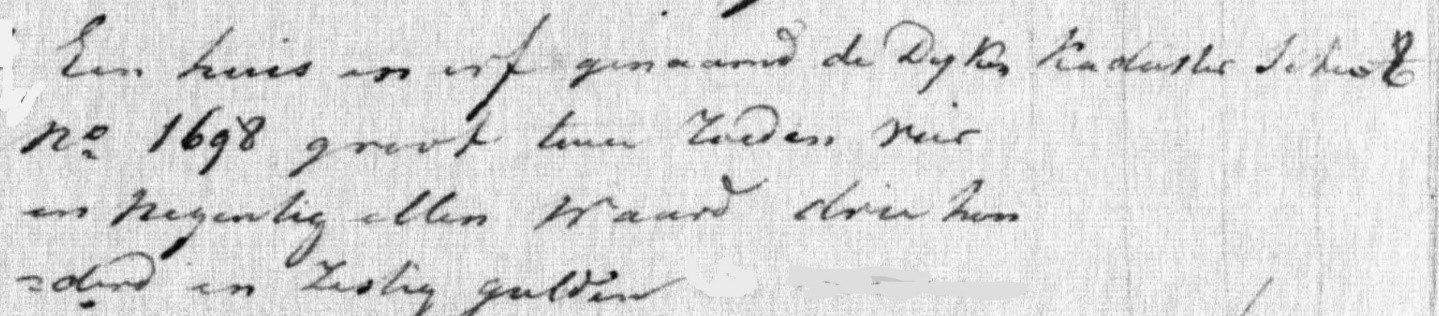 Een huis en erf genaamd de Dyken Kadaster Sectie E
No 1698 groot twee roeden vier
en negentig ellen Waard driehon
=derd en Zestig gulden